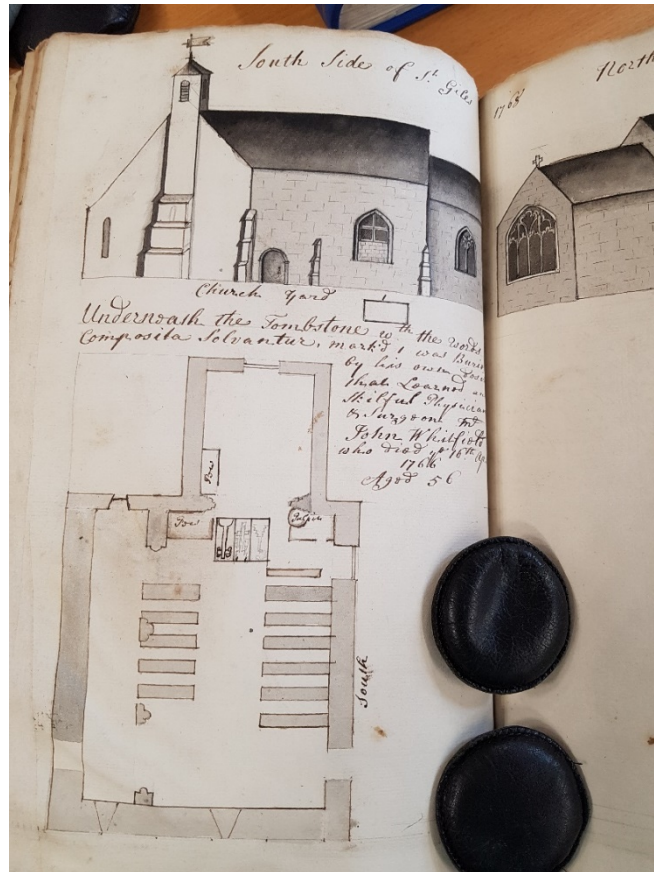 South Side of St. Giles
1768
North
Church Yard
Underneath the Tombstone wth the Words
Composita Solvantur, mark'd 1 was Buried
by his own
that Learned
Skilful Physician
& Surgeon
John Whitfield
who died ye 16th
1766
Aged 56
Pew
Pew
Pulpit
South